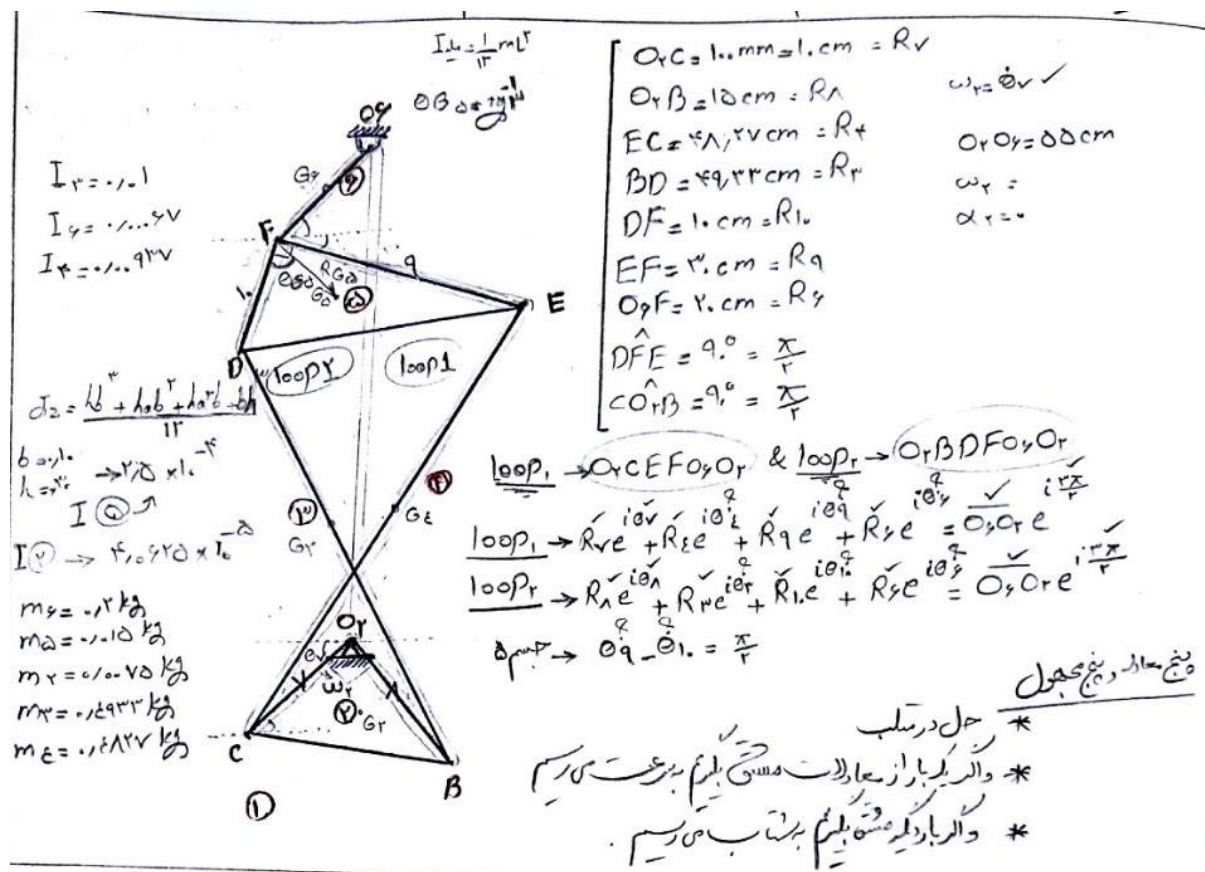 I میله = ۱/۱۲ mL^۲
O۶
G۶
۶
F
I۳ = ۰/۰۱
I۶ = ۰/۰۰۰۶۷
I۴ = ۰/۰۰۹۳۷
θG۵
RG۵
G۵
۵
۹
۱۰
E
D
loop۲
loop1
۱۲
b = ۰/۱۰
→ ۲/۵ × ۱۰^-۴
I ۵
I ۲ → ۴/۰۶۲۵ × ۱۰^-۵
۳
G۳
۴
G٤
m۶ = ۰/۲ kg
m۵ = ۰/۰۱۵ kg
m۲ = ۰/۰۰۷۵ kg
m۳ = ۰/٤۹۳۳ kg
m٤ = ۰/٤۸۲۷ kg
O۲
θ۷
۷
ω۲
۸
۲
G۲
C
B
۱
O۲C = ۱۰۰ mm = ۱۰ cm = R۷
O۲B = ۱۵ cm = R۸
ω۲ = θ̇۷ ✓
EC = ۴۸,۲۷ cm = R۴
O۲O۶ = ۵۵ cm
BD = ۴۹,۳۳ cm = R۳
ω۲ =
DF = ۱۰ cm = R۱۰
α۲ = ۰
EF = ۳۰ cm = R۹
O۶F = ۲۰ cm = R۶
DF̂E = ۹۰° = π/۲
CÔ۲B = ۹۰° = π/۲
loop۱ → O۲CEFO۶O۲ & loop۲ → O۲BDFO۶O۲
loop۱ → R۷e^iθ۷ + R٤e^iθ٤ + R۹e^iθ۹ + R۶e^iθ۶ = O۶O۲ e^i۳π/۲
loop۲ → R۸e^iθ۸ + R۳e^iθ۳ + R۱۰e^iθ۱۰ + R۶e^iθ۶ = O۶O۲ e^i۳π/۲
جسم ۵ → θ۹ - θ۱۰ = π/۲
پنج معادله و پنج مجهول
* حل در متلب
* و اگر یک بار از معادلات مشتق بگیریم به سرعت می رسیم
* و اگر بار دیگر مشتق بگیریم به شتاب می رسیم .